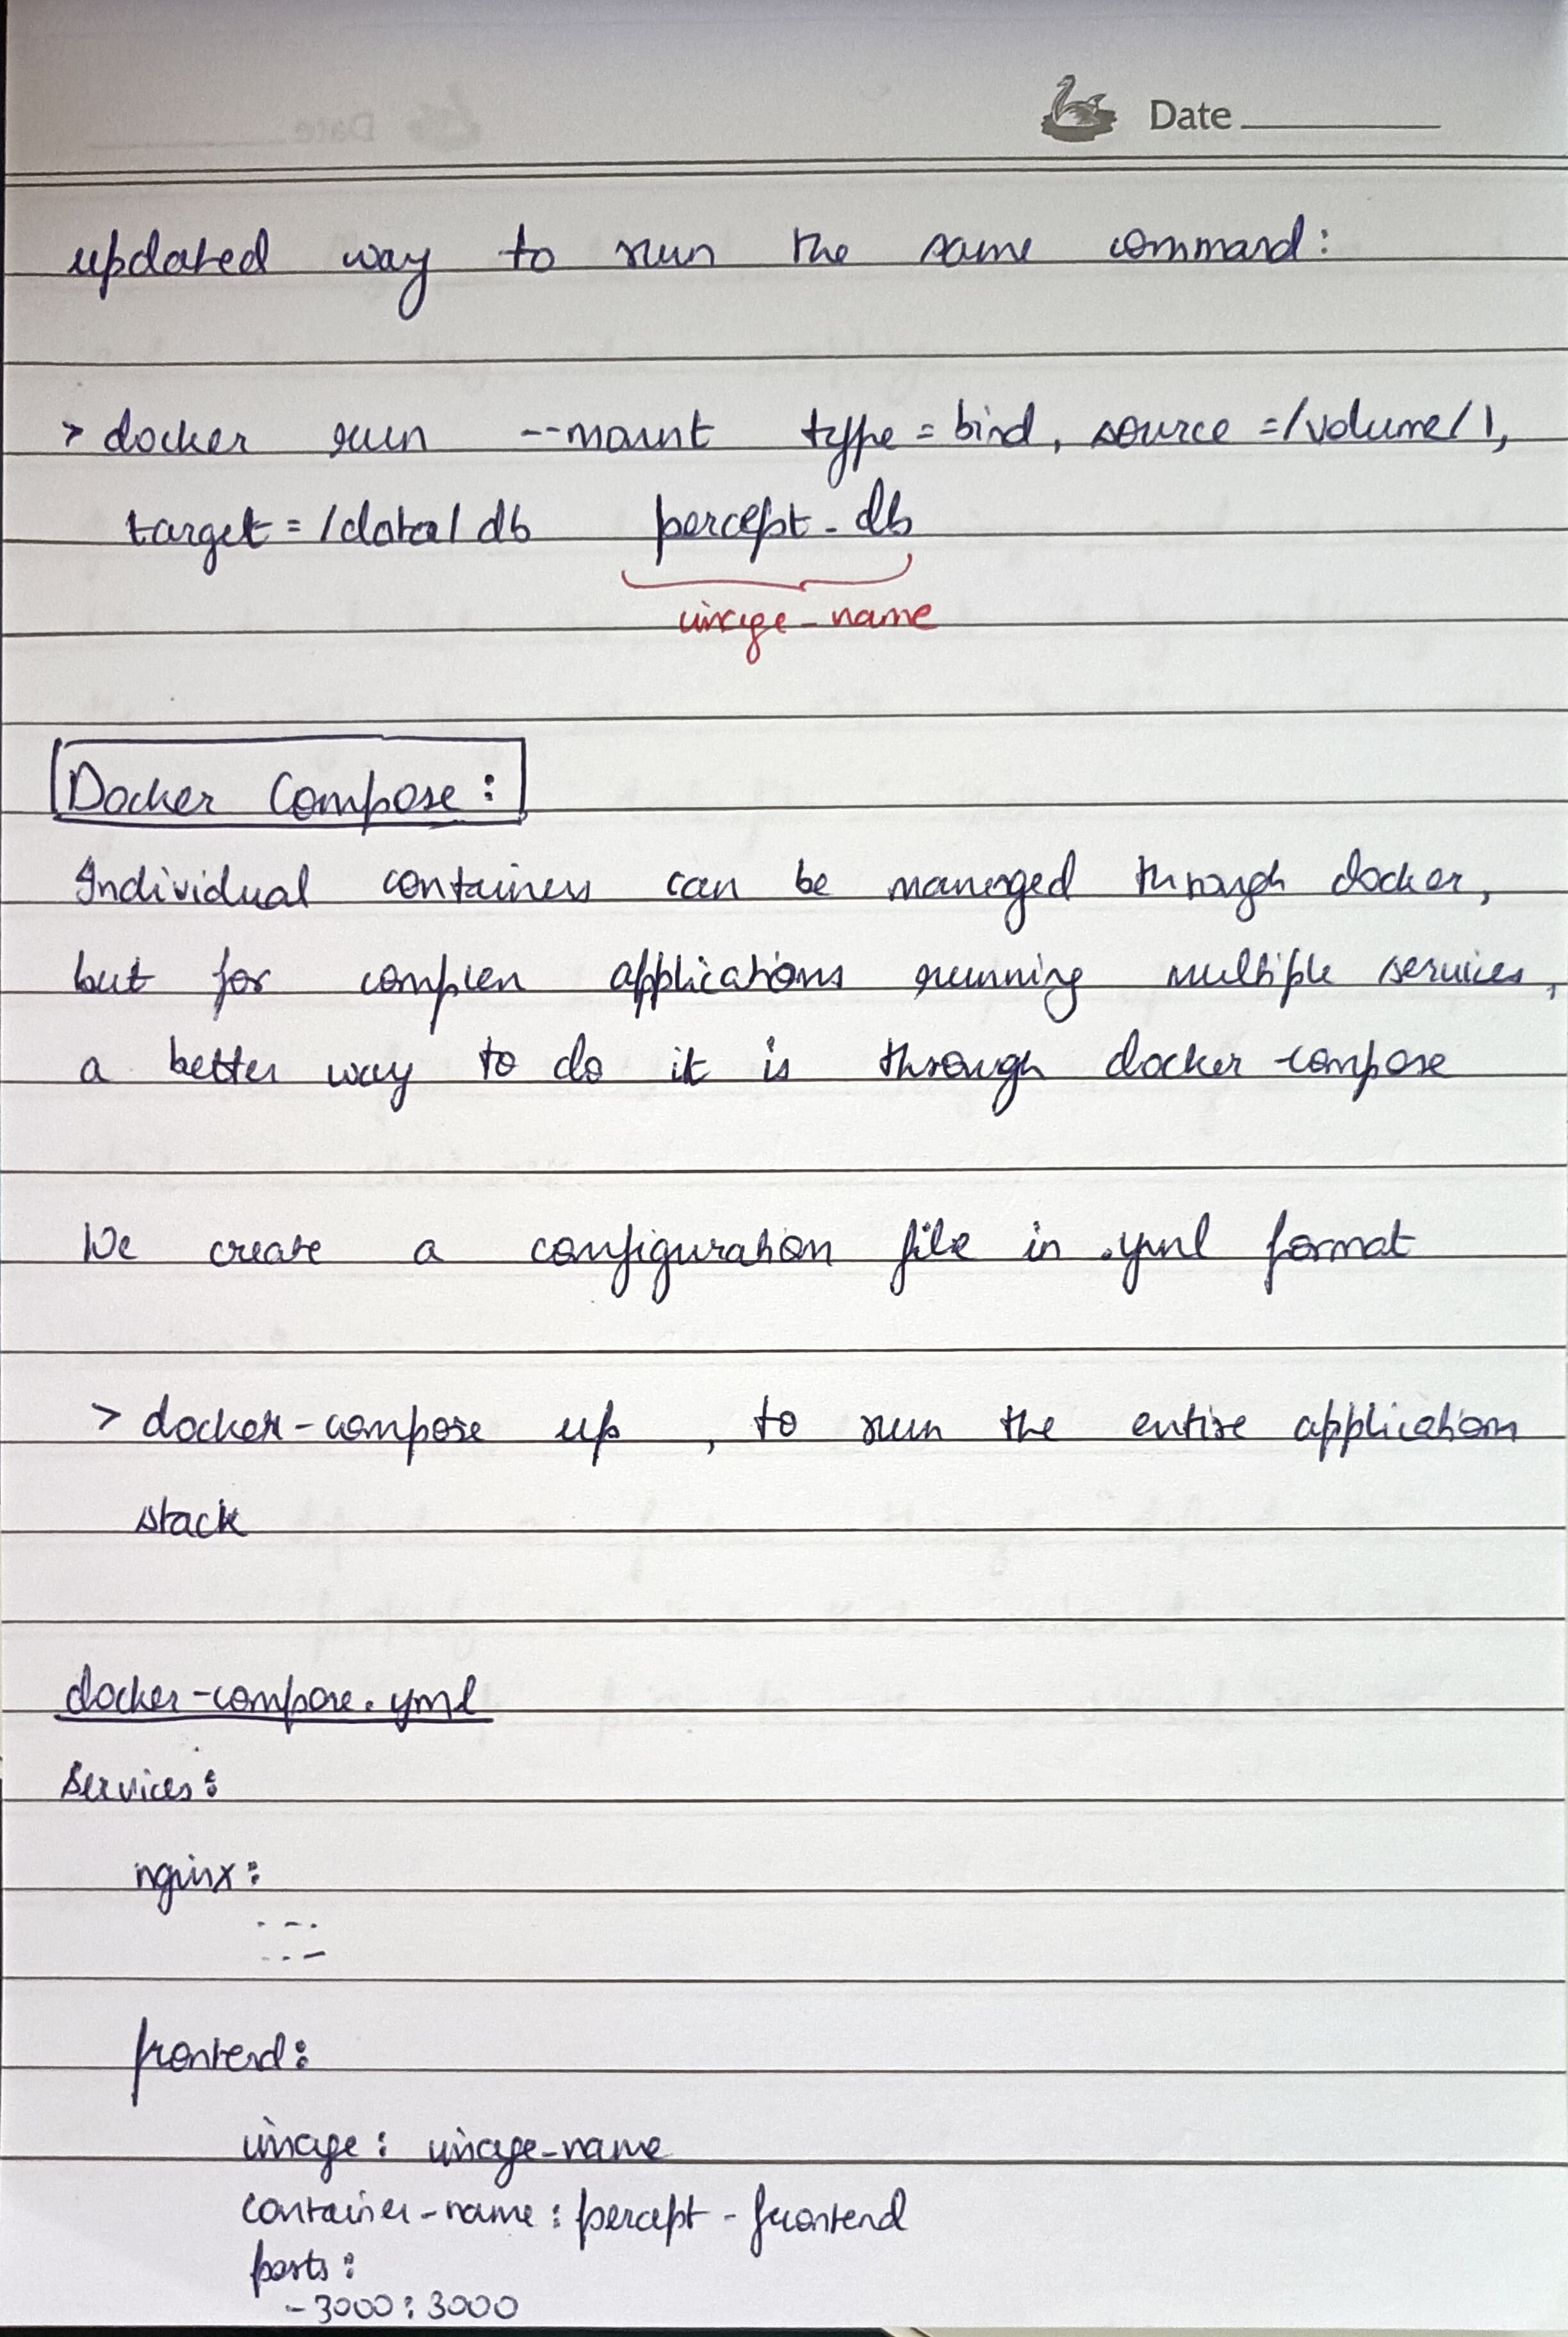 Date
updated way to run the same command:
> docker run --mount type = bind, source =/volume/1,
target = /data/ db percept-db
image-name
Docker Compose:
Individual containers can be managed through docker,
but for complex applications running multiple services,
a better way to do it is through docker-compose
We create a configuration file in .yml format
> docker-compose up , to run the entire application
stack
docker-compose.yml
Services:
nginx:
---
---
frontend:
image: image-name
container-name: percept-frontend
ports:
-3000:3000